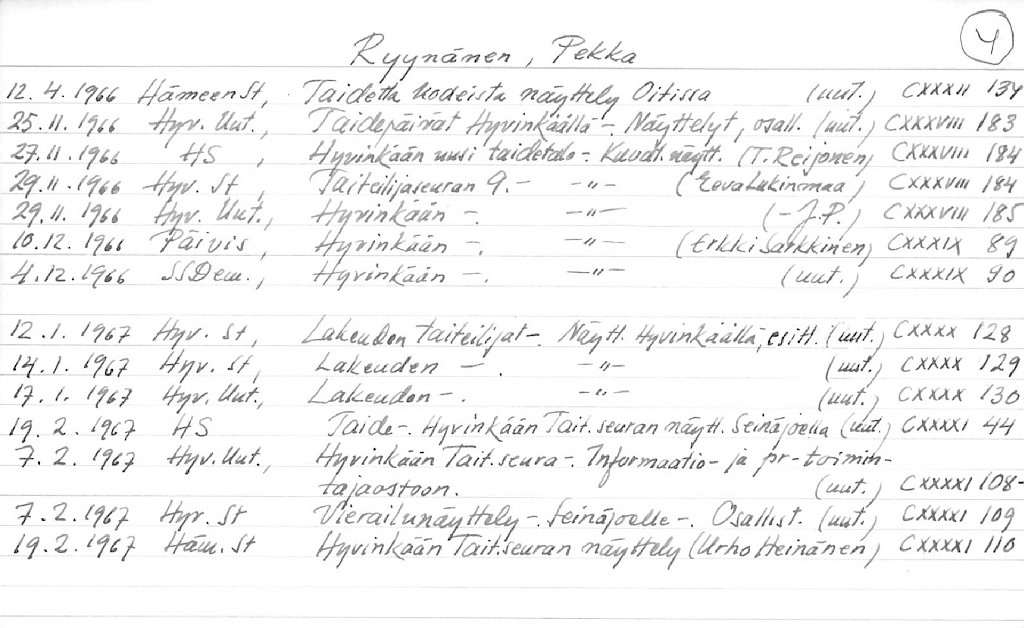 4
Ryynänen, Pekka
12. 4. 1966 Hämeen St, Taidetta kodeista näyttely Oitissa (uut.) CXXXII 134
25. 11. 1966 Hyv. Uut., Taidepäivät Hyvinkäällä - Näyttelyt, osall. (uut.) CXXXVIII 183
27. 11. 1966 HS, Hyvinkään uusi taidetalo -. Kuvat. näytt. (T. Reijonen) CXXXVIII 184
29. 11. 1966 Hyv. St, Taiteilijaseuran 9. - -"- (Eeva Lukinmaa) CXXXVIII 184
29. 11. 1966 Hyv. Uut., Hyvinkään -. -"- (- J.P.) CXXXVIII 185
10. 12. 1966 Päivis, Hyvinkään -. -"- (Erkki Sarkkinen) CXXXIX 89
4. 12. 1966 SSDem., Hyvinkään -. -"- (uut.) CXXXIX 90
12. 1. 1967 Hyv. St, Lakeuden taiteilijat -. Näytt. Hyvinkäällä, esitt. (uut.) CXXXX 128
14. 1. 1967 Hyv. St, Lakeuden -. -"- (uut.) CXXXX 129
17. 1. 1967 Hyv. Uut., Lakeuden -. -"- (uut.) CXXXX 130
19. 2. 1967 HS Taide -. Hyvinkään Tait. seuran näytt. Seinäjoella (uut.) CXXXXI 44
7. 2. 1967 Hyv. Uut., Hyvinkään Tait. seura -. Informaatio- ja pr-toimin-
tajaostoon. (uut.) CXXXXI 108-
7. 2. 1967 Hyv. St Vierailunäyttely -. Seinäjoelle -. Osallist. (uut.) CXXXXI 109
19. 2. 1967 Häm. St Hyvinkään Tait. seuran näyttely (Urho Heinänen) CXXXXI 110